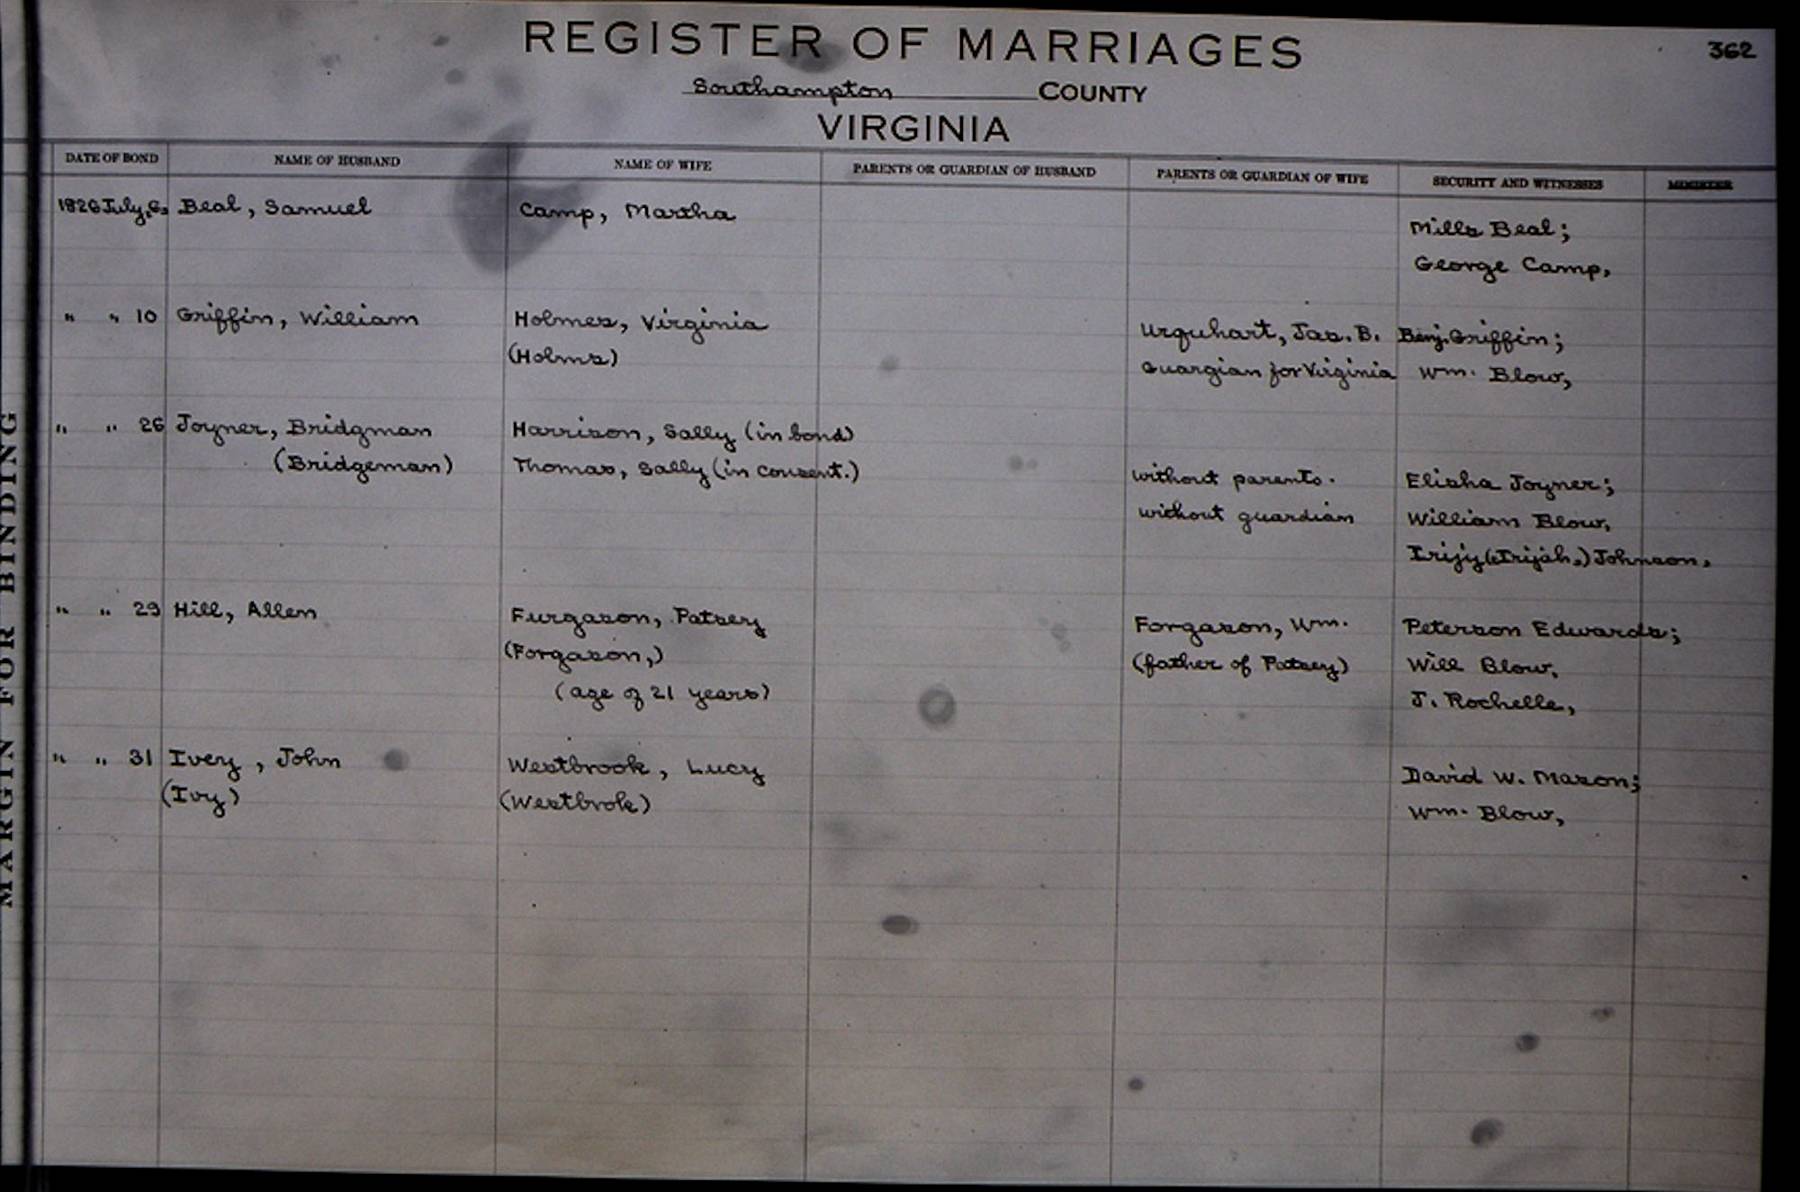 REGISTER OF MARRIAGES
362
Southampton COUNTY
VIRGINIA
DATE OF BOND NAME OF HUSBAND NAME OF WIFE PARENTS OR GUARDIAN OF HUSBAND PARENTS OR GUARDIAN OF WIFE SECURITY AND WITNESSES MINISTER
1826 July, 6, Beal, Samuel Camp, Martha Mills Beal;
George Camp,
" " 10 Griffin, William Holmes, Virginia Urquhart, Jas. B. Benj. Griffin;
(Holms) Guargian for Virginia Wm. Blow,
" " 26 Joyner, Bridgman Harrison, Sally (in bond)
(Bridgeman) Thomas, Sally (in consent.) without parents. Elisha Joyner;
without guardian William Blow,
Irijy (Irijah,) Johnson,
" " 29 Hill, Allen Furgason, Patsey Forgason, Wm. Peterson Edwards;
(Forgason,) (father of Patsey) Will Blow,
(age of 21 years) J. Rochelle,
" " 31 Ivey, John Westbrook, Lucy David W. Mason;
(Ivy) (Westbrok) Wm. Blow,
MARGIN FOR BINDING